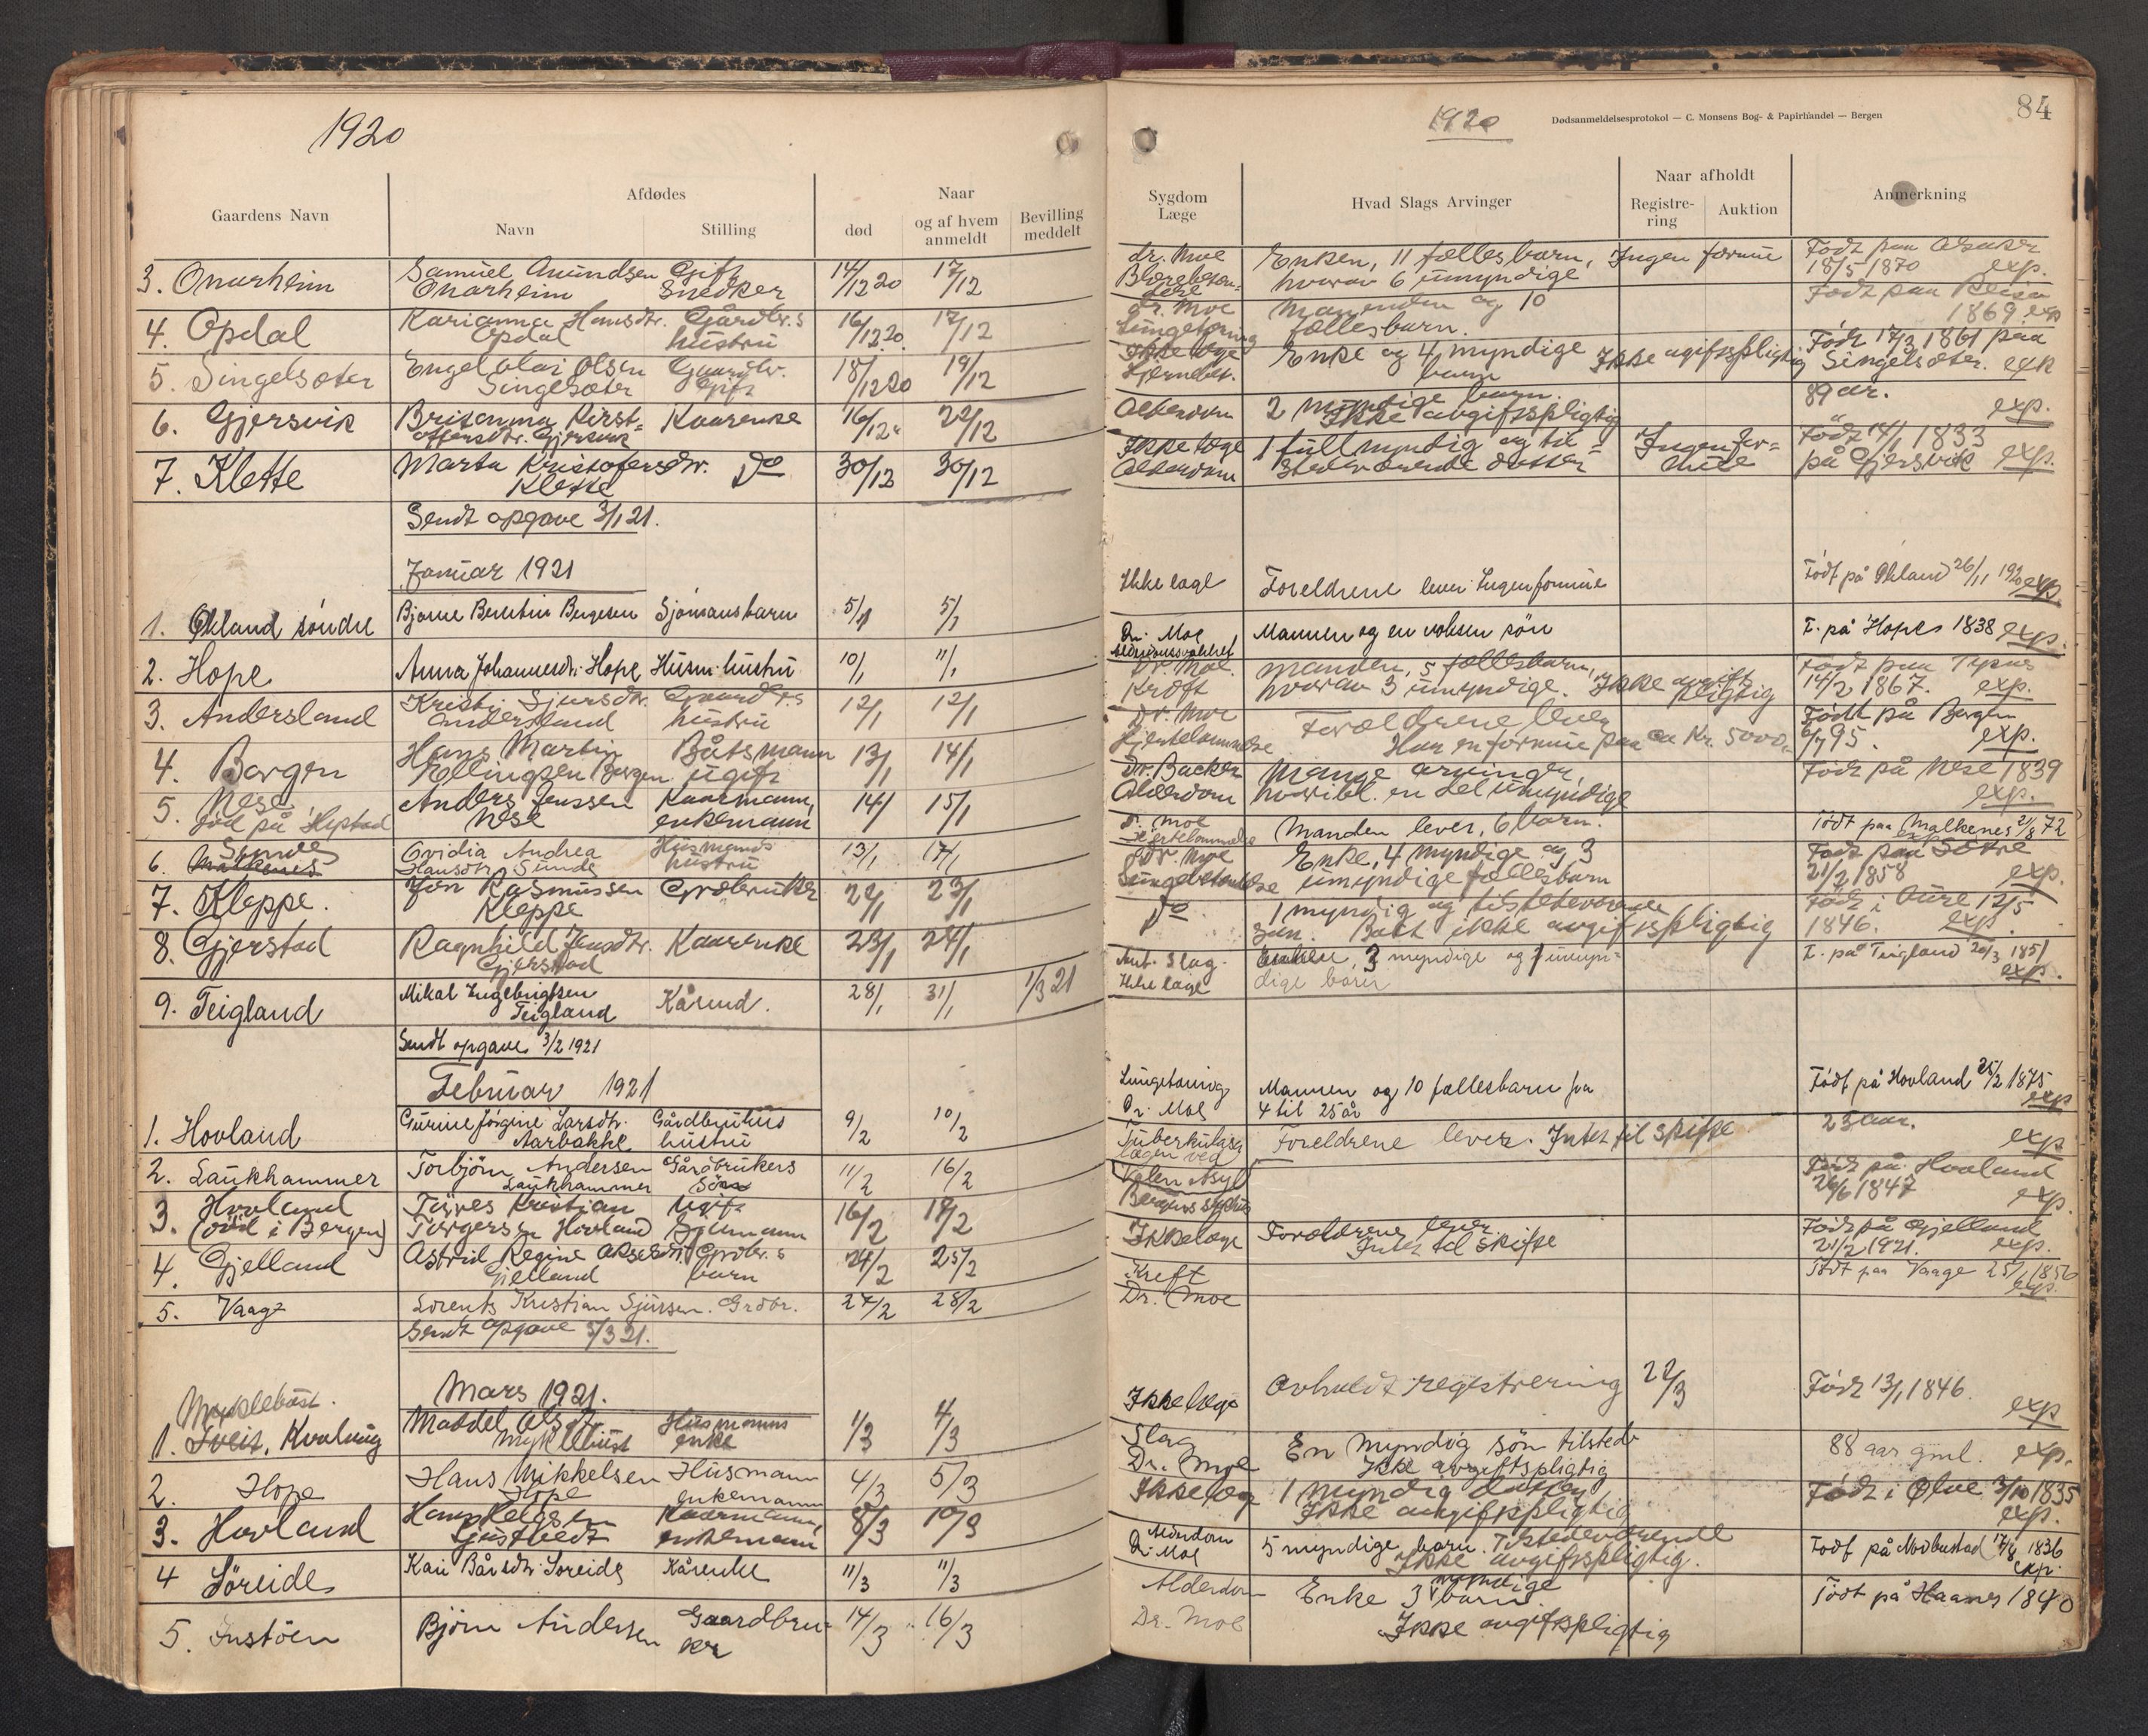 1920
Gaardens Navn
Afdødes
Navn
Stilling
Naar
død
og af hvem
anmeldt
Bevilling
meddelt
3. Onarheim
Samuel Amundsen
Onarheim
Gift
Snedker
14/12 20
17/12
4. Opdal
Karianna Hansdtr.
Opdal
Gårdbr.s
hustru
16/12 20
17/12
5. Singelsæter
Engel Olai Olsen
Singelsæter
Gaardbr.
Gift
18/12 20
19/12
6. Gjersvik
Britanna Kirst-
offersdtr. Gjersvik
Kaarenke
16/12
22/12
7. Klette
Marta Kristofersdtr.
Klette
Do
30/12
30/12
Sendt opgave 3/1 21.
Januar 1921
1. Økland søndre
Bjarne Berntin Bergesen
Sjømansbarn
5/1
5/1
2. Hope
Anna Johannesdtr. Hope
Husm. hustru
10/1
11/1
3. Andersland
Kristi Sjursdtr.
Andersland
Gaardbr.s
hustru
12/1
12/1
4. Borgen
Hans Martin
Ellingsen Borgen
Båtsmann
ugift
13/1
14/1
5. Nese
Anders Jenssen
Nese
Kaarmann,
enkemann
14/1
15/1
6. Sunde
Ovidia Andrea
Hansdtr. Sunde
Husmands
hustru
13/1
17/1
7. Kleppe.
Jon Rasmussen
Kleppe
Grdbruker
22/1
23/1
8. Gjerstad
Ragnhild Jensdtr.
Gjerstad
Kaarenke
23/1
24/1
9. Teigland
Mikal Ingebrigtsen
Teigland
Kårmd.
28/1
31/1
1/3 21
Sendt opgave 3/2 1921
Februar 1921
1. Hovland
Gurine Jørgine Larsdtr.
Aarbakke
Gårdbrukers
hustru
9/2
10/2
2. Laukhammer
Torbjørn Andersen
Laukhammer
Gårdbrukers
Søn
11/2
16/2
3. Hovland
(død i Bergen)
Torgersen Hovland
Ugift
Sjømann
16/2
18/2
4. Gjelland
Astrid Regine
Gjelland
Grdbr.s
barn
24/2
25/2
5. Vaage
Lorents Kristian Sjursen.
Grdbr.
27/2
28/2
Sendt opgave 5/3 21.
Mars 1921.
Myklebust.
1. Tveit, Kvaling
Myklebust
Husmanns
enke
1/3
4/3
2. Hope
Hans Mikkelsen
Hope
Husmann
enkemann
4/3
5/3
3. Hovland
Hans Helgesen
Kaarmann,
enkemann
8/3
10/3
4 Søreide
Kari Bårsdtr. Søreide
Kårenke
11/3
11/3
5. Instøen
Bjørn Andersen
Gaardbru-
ker
14/3
16/3
1920
Dødsanmeldelsesprotokol — C. Monsens Bog- & Papirhandel — Bergen
84
Sygdom
Læge
Hvad Slags Arvinger
Naar afholdt
Registre-
ring
Auktion
Anmerkning
dr. Moe
Enken, 11 fællesbarn,
hvorav 6 umyndige
Ingen formue
18/5 1870 exp.
dr. Moe
Manden og 10
fællesbarn.
1869. exp
Ikke læge
Hjernebet.
Enke og 4 myndige
barn
Ikke avgiftspligtig
Født 17/3 1861 paa
Singelsæter. exp
Alderdom
2 myndige barn.
Ikke avgiftspligtig
89 år.
exp.
Ikke læge
Alderdom
1 fullmyndig og til-
stedeværende datter
Ingen for-
mue
Født 14/1 1833
på Gjersvik exp.
Ikke læge
Foreldrene lever. Ingen formue
Født på Økland 26/11 1920 exp.
Dr. Moe
Mannen og en voksen søn
F. på Hope 1838 exp.
Dr. Moe
Kræft
Manden, 5 fællesbarn,
hvorav 3 umyndige. Ikke avgifts
pligtig
14/2 1867. exp.
Dr. Moe
Hjertelammelse
Forældrene lever
Har en formue paa ca Kr. 5000,-
Født på Borgen
exp.
Dr. Backer
Alderdom
Mange arvinger,
hvoribl. en del umyndige
Født på Nese 1839
exp.
Dr. Moe
Hjertelammelse
Manden lever, 6 barn.
Født paa Malkenes 2/8 72
exp
Dr. Moe
Lungebetændelse
Enke, 4 myndige og 3
umyndige fællesbarn
21/2 1858 exp.
Do
1 myndig og tilstedeværende
søn. Boet ikke avgiftspligtig
Født i Aure 12/5
1846. exp.
Ant. Slag.
Ikke læge
Enken, 3 myndige og 1 umyn-
dige barn
F. på Teigland 20/3 1851
exp.
Lungetæring
Dr. Moe
Mannen og 10 fællesbarn fra
4 til 25 år
Født på Hovland 25/2 1875
exp
Tuberkulose
lægen ved
Valen Asyl
Foreldrene lever. Intet til skifte
23 aar.
exp
Bergens sykehus
Født på Hovland
26/6 1847
exp.
Ikke læge
Forældrene lever
Intet til skifte
Født på Gjelland
21/2 1921. exp.
Kreft
Dr. Moe
Født paa Vaage 25/1 1856
exp.
Ikke læge
Avholdt registrering
22/3
Født 13/1 1846.
exp
Slag
Dr. Moe
En myndig søn tilstede
Ikke avgiftspligtig
88 aar gml. exp.
Ikke læge
1 myndig datter
Ikke avgiftspligtig
Født i Ølve 3/10 1835
exp.
Alderdom
Dr. Moe
5 myndige barn. Tilstedeværende
Ikke avgiftspligtig.
17/8 1836
exp.
Alderdom
Dr. Moe
Enke 3 myndige barn.
Ikke avgiftspligtig
Født på Haanes 1840